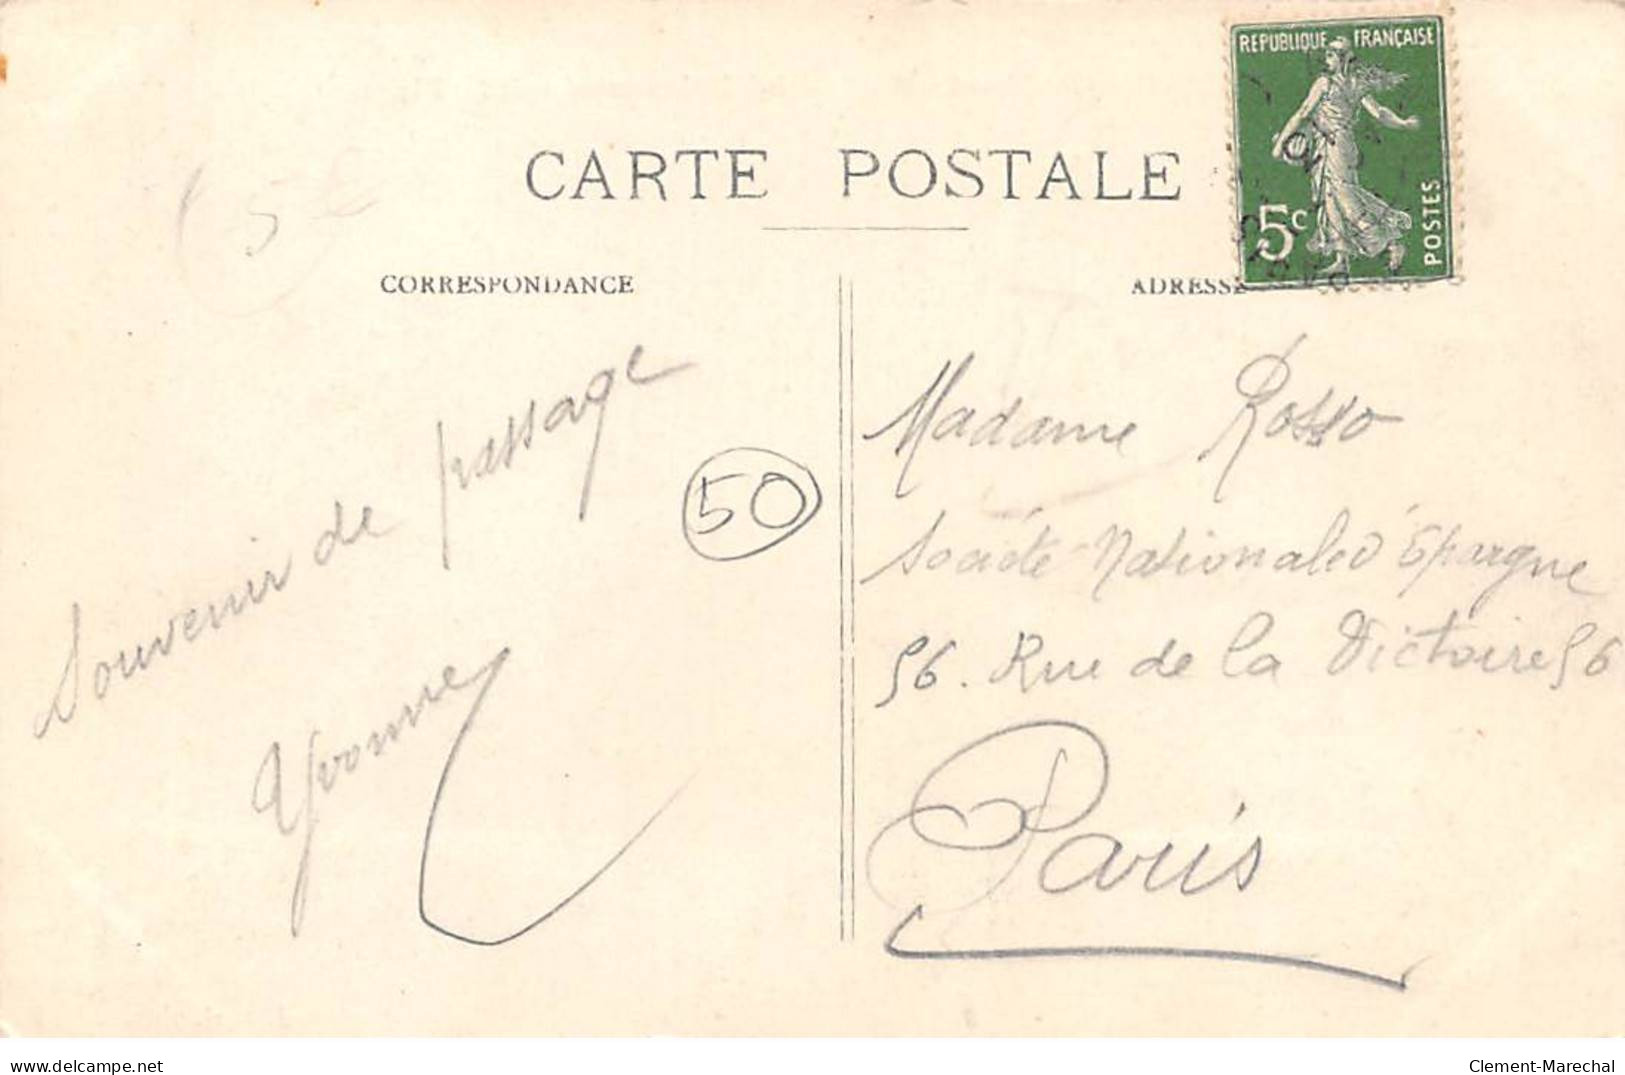 CARTE POSTALE
REPUBLIQUE FRANÇAISE
5c
POSTES
5€
CORRESPONDANCE
ADRESSE
Souvenir de passage
Yvonne
50
Madame Rosso
Société Nationale d'Épargne
56. Rue de la Victoire 56
Paris
delcampe.net
Clement-Marechal